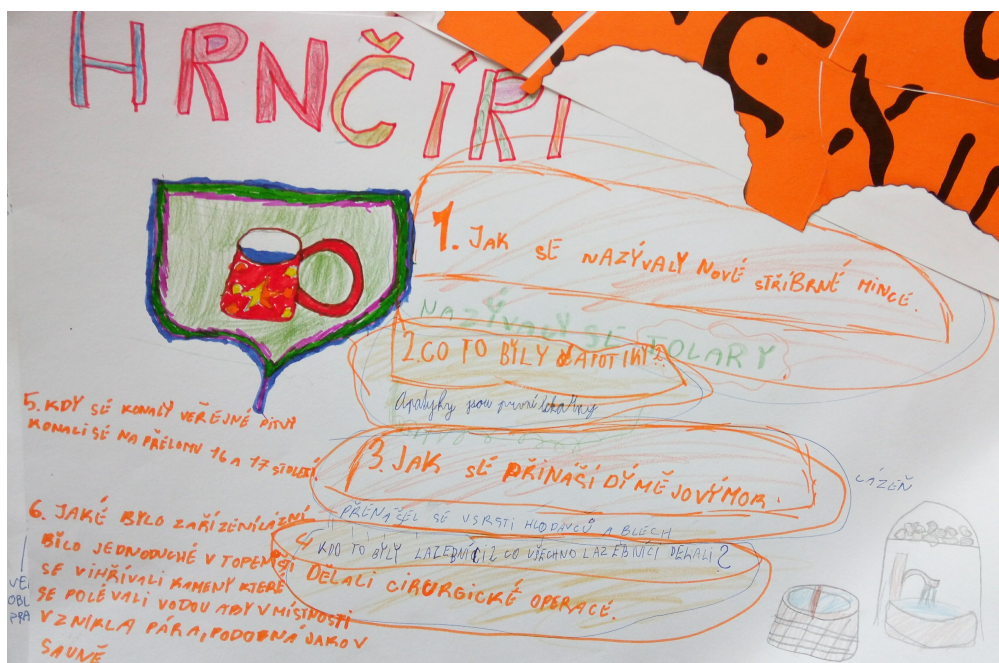 HRNČÍŘI
1. JAK SE NAZÝVALY NOVÉ STŘÍBRNÉ MINCE.
NAZÝVALY SE TOLARY
2. CO TO BYLY APOTIKY?
Apatyky jsou první lékárny
3. JAK SE PŘINAŠÍ DÝMĚJOVÝMOR.
PŘENAŠEL SE V SRSTI HLODAVCŮ A BLECH
4 KDO TO BYLY LAZEBNÍCI? CO VŠECHNO LAZEBNICI DĚLALI?
DĚLALI CIRURGICKÉ OPERACE.
5. KDY SE KONALY VEŘEJNÉ PITVY
KONALI SE NA PŘELOMU 16 A 17 STOLETÍ.
6. JAKÉ BYLO ZAŘÍZENÍ LÁZNÍ
BYLO JEDNODUCHÉ V TOPENIŠTI
SE VIHŘÍVALI KAMENY KTERÉ
SE POLÉVALI VODOU ABY V MÍSTNOSTI
VZNIKLA PÁRA, PODOBNÁ JAKO V
SAUNĚ
LÁZEŇ
VE
OBL
PRA